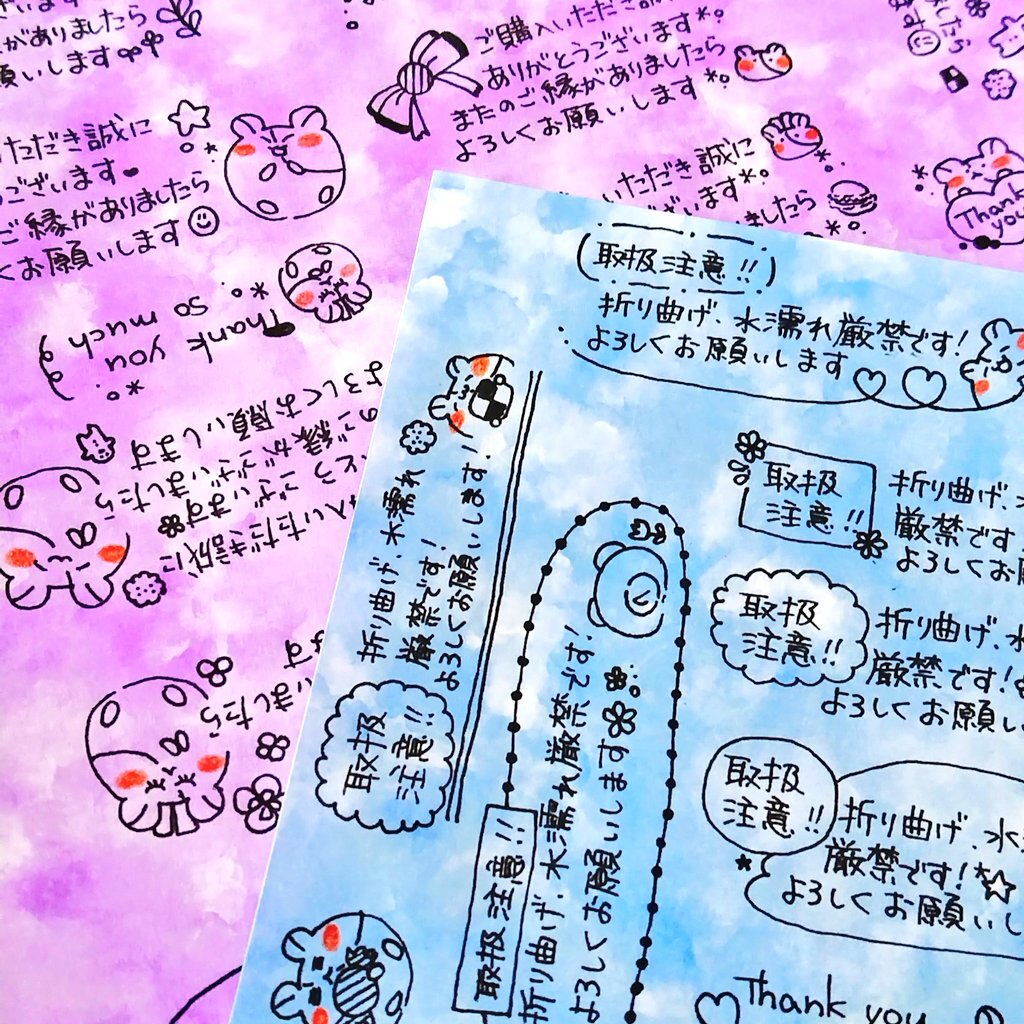 がありましたら
願いします
ご購入いただき誠に
ありがとうございます
またのご縁がありましたら
よろしくお願いします
いただき誠に
ございます
ご縁がありましたら
くお願いします
いただき誠に
Thank
you
Thank
you
so
much
いただき誠に
とうございます
ご縁がございましたら
よろしくお願いします
いましたら
ます
取扱注意!!
折り曲げ、水濡れ厳禁です!
よろしくお願いします
折り曲げ、水濡れ
厳禁です!
よろしくお願いします!
取扱
注意!!
取扱注意!!
折り曲げ、水濡れ厳禁です!
よろしくお願いします
取扱
注意!!
折り曲げ、水
厳禁です
よろしくお
取扱
注意!!
折り曲げ、水
厳禁です!
よろしくお願い
取扱
注意!!
折り曲げ、水
厳禁です!
よろしくお願いし
Thank you